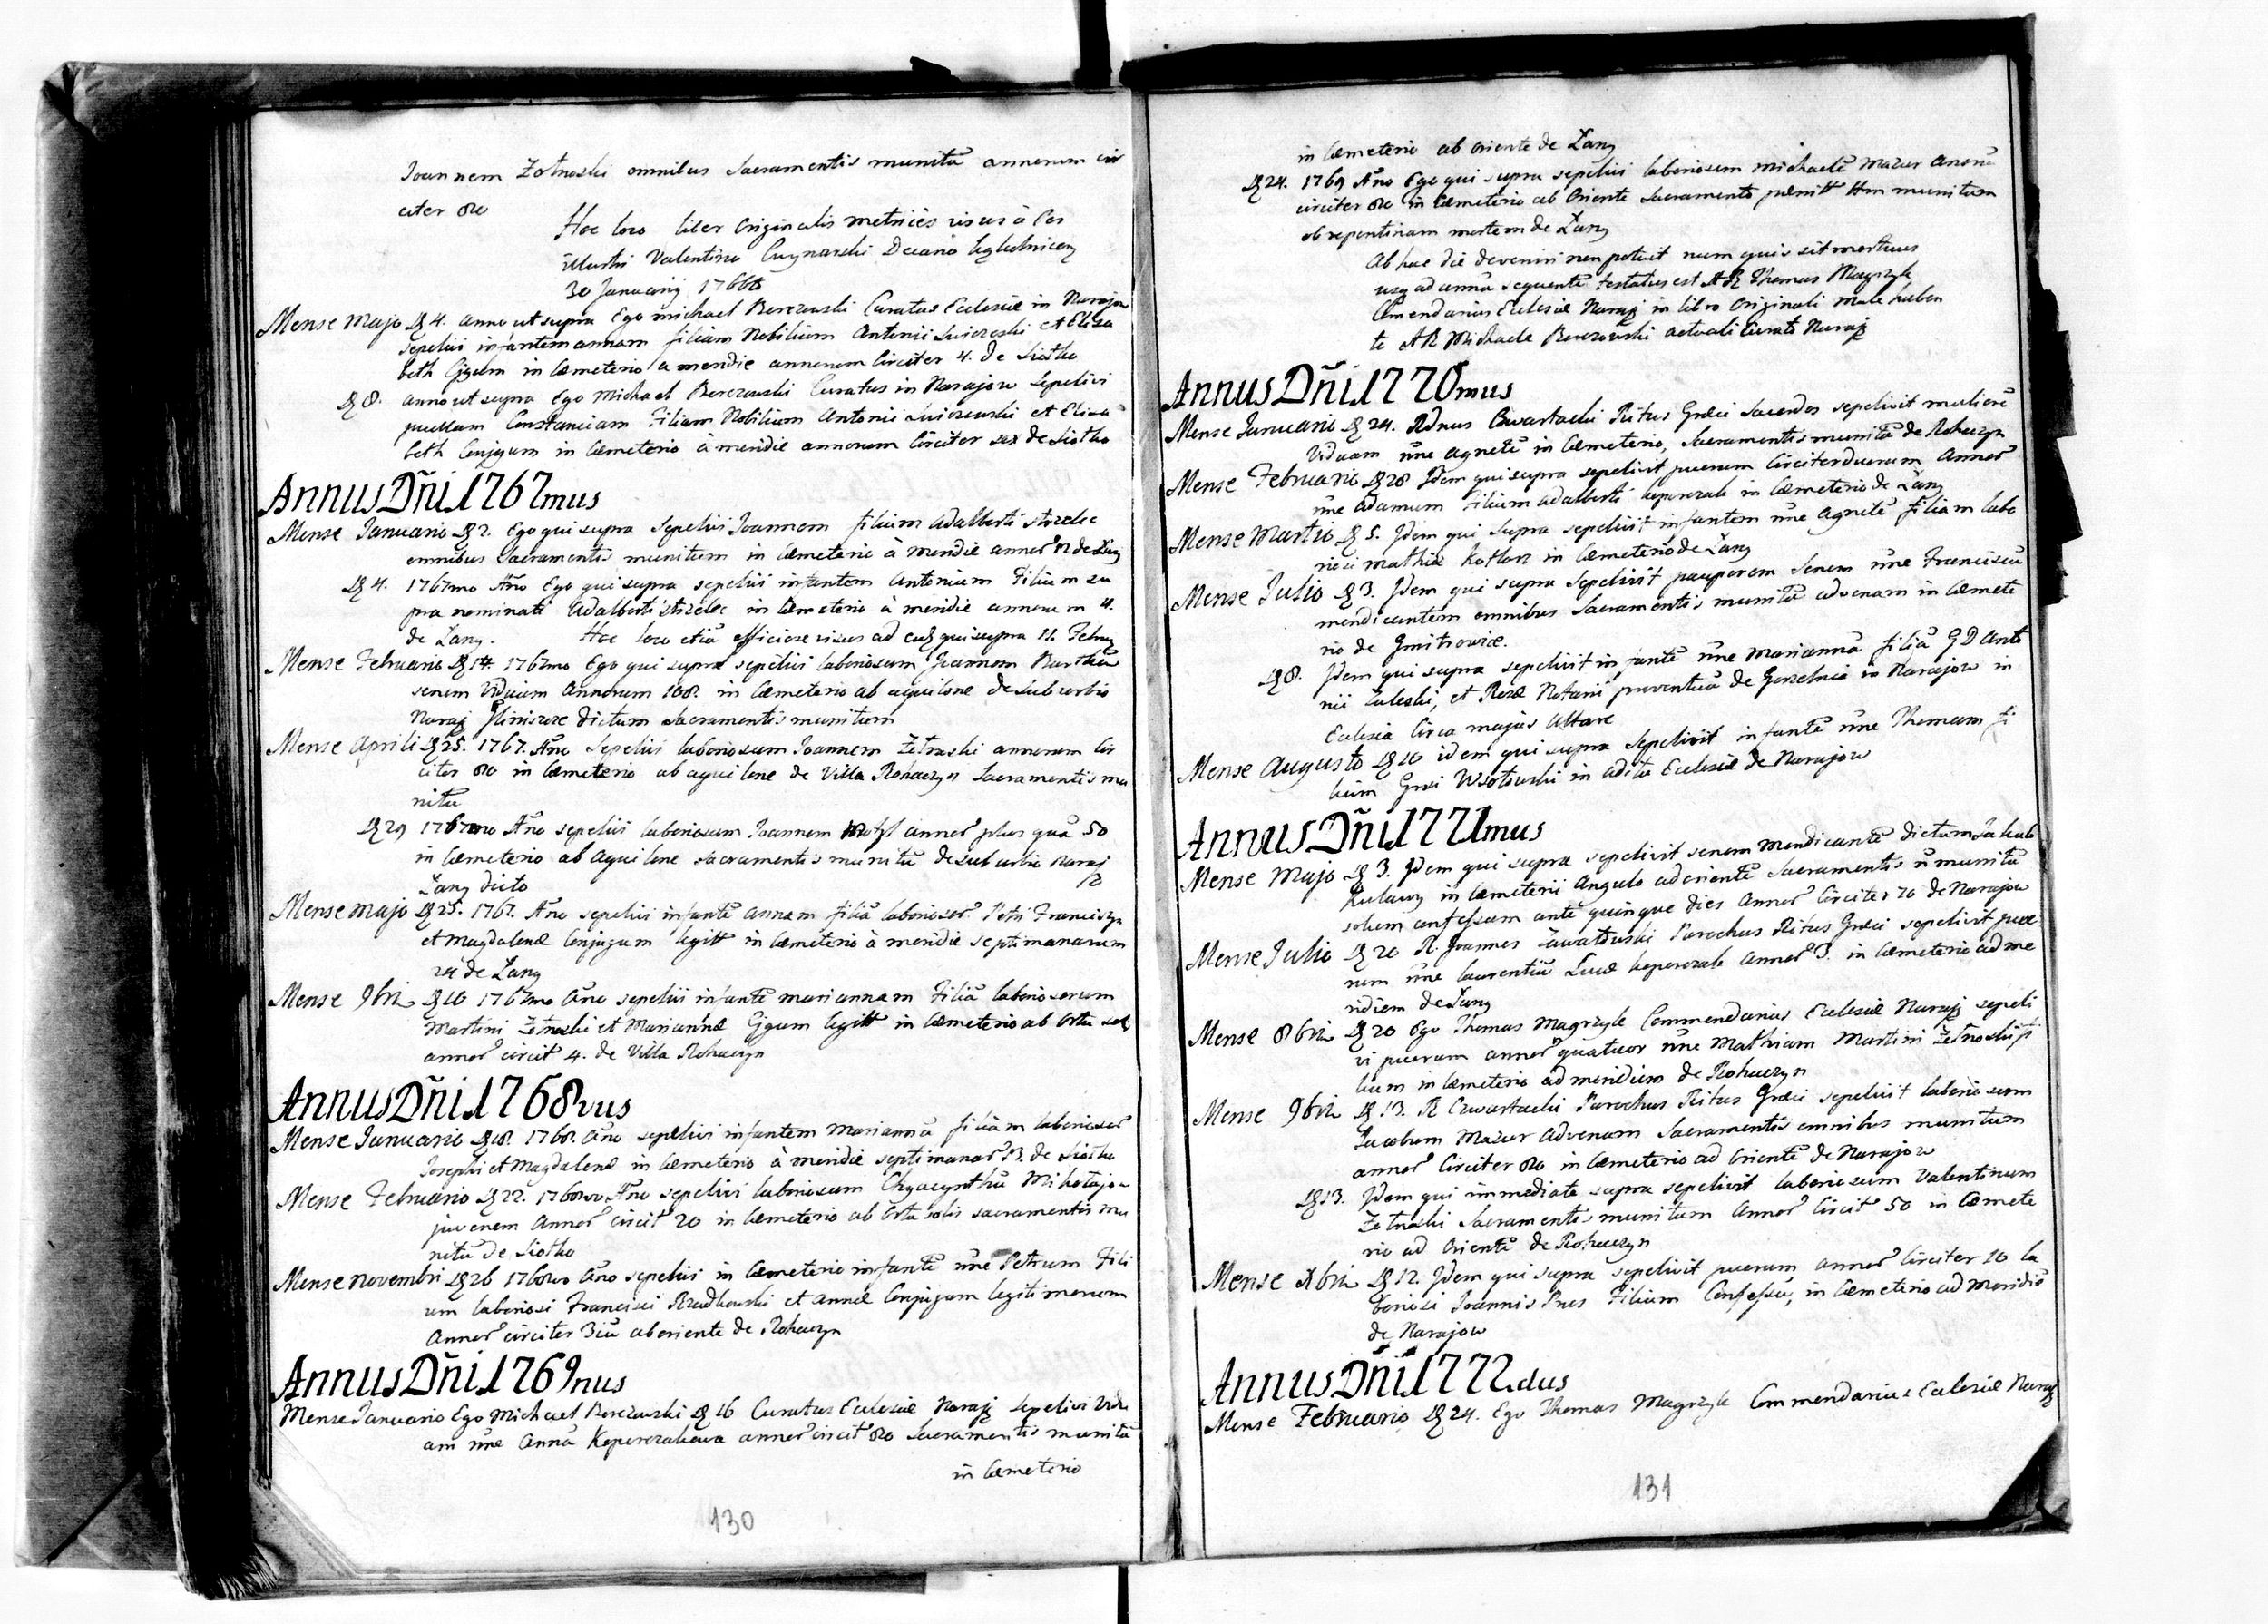 Joannem Zotnoski omnibus Sacramentis munitũ annorum cir
citer 80
Hoc loco liber Originalis metrices visus à Per
illustri Valentino Decano
30 Januarij 1766
Mense Majo D 4. anno ut supra Ego Michael Berezowski Curatus Ecclesiæ in Narajow
sepelivi infantem annam filiam Nobilium Antonii et Eliza
beth Cjgum in Cæmeterio a meridie annorum Circiter 4. de Siołko
D 8. anno ut supra Ego Michael Berezowski Curatus in Narajow Sepelivi
puellam Constanciam Filiam Nobilium Antonii et Eliza
beth Conjgum in Cæmeterio à meridie annorum Circiter sex de Siołko
Annus Dñi 1767mus
Mense Januario D 2. Ego qui supra Sepelivi Joannem filium Adalberti Strzelec
omnibus Sacramentis munitum in Cæmeterio à Meridie annor̃ de Lany
D 4. 1767mo Año Ego qui supra sepelivi infantem Antonium Filium su
pra nominati Adalberti Strzelec in Cæmeterio à meridie annorum 4.
de Lany. Hoc loco etiã officiose visus ad qui supra 11. Febry
Mense Februario D 14. 1767mo Ego qui supra sepelivi laboriosum Joannem
senem Viduum Annorum 108. in Cæmeterio ab aquilone de suburbio
Naraj dictum Sacramentis munitum
Mense Aprili D 25. 1767. Año Sepelivi laboriosum Joannem Zotnoski annorum Cir
citer 80 in Cæmeterio ab aquilone de Villa Rohaczyn Sacramentis mu
nitũ
D 29 1767mo Año sepelivi laboriosum Joannem annor̃ plus quã 50
in Cæmeterio ab Aquilone sacramentis munitũ de suburbio Naraj
Lany dicto
Mense Majo D 25. 1767. Año sepelivi infantẽ annam filiã laboriosor̃ Petri Franciszyn
et Magdalenæ Conjugum legitt in Cæmeterio à meridie septimanarum
24 de Lany
Mense 9bri D 10 1767mo Año sepelivi infantẽ mariannam Filiã laboriosorum
Martini Zotnoski et Mariannæ Cjgum legitt in Cæmeterio ab Ortu sol
annor̃ circit 4. de Villa Rohaczyn
Annus Dñi 1768vus
Mense Januario D 18. 1768. Año sepelivi infantem Mariannã filiam laboriosor̃
Josephi et Magdalenæ in Cæmeterio à meridie septimanar̃ 13. de Siołko
Mense Februario D 22. 1768vo Año sepelivi laboriosum Chyacynthũ Mikołajow
juvenem Annor̃ circit 20 in Cæmeterio ab Ortu solis sacramentis mu
nitũ de Siołko
Mense Novembri D 26 1768vo Año sepelivi in Cæmeterio infantẽ ñne Petrum Fili
um laboriosi Francisci Rzadkowski et Annæ Conjugum legitimorum
Annor̃ circiter 3iũ ab oriente de Rohaczyn
Annus Dñi 1769nus
Mense Januario Ego Michael Berezowski D 16 Curatus Ecclesiæ Naraj sepelivi Vidu
am ñne Annã Keperczakowa annor̃ circit 80 Sacramentis munitã
in Cæmeterio
130
in Cæmeterio ab Oriente de Lany
D 24. 1769 Año Ego qui supra sepelivi laboriosum Michaelẽ Mazur Anorũ
circiter 80 in Cæmeterio ab Oriente Sacramento munitum
ob repentinam mortem de Lany
Ab hac die deveniri non potuit num quis sit mortuus
usq ad annũ sequentẽ testatus est A R Thomas Magrzyk
Cõmendarius Ecclesiæ Naraj in libro Originali male haben
te A R Michaele Berezowski actuali Curato Naraj
Annus Dñi 1770mus
Mense Januario D 24. Rdnus Cwartacki Ritus Græci Sacerdos sepelivit mulierẽ
Viduam ñne Agnetẽ in Cæmeterio, Sacramentis munitã de Rohaczyn
Mense Februario D 28 Idem qui supra sepelivit puerum Circiter duorum Annor̃
ñne Adamum Filium Adalberti Keperczak in Cæmeterio de Lany
Mense Martio D 5. Idem qui supra sepelivit infantem ñne Agnetẽ filiam labo
riosi Mathiæ Kotlarz in Cæmeterio de Lany
Mense Julio D 3. Idem qui supra sepelivit pauperem Senem ñne Franciscũ
mendicantem omnibus Sacramentis munitũ advenam in Cæmete
rio de Gmitrowiæ.
D 8. Idem qui supra sepelivit infantẽ ñne Mariannã filiã G D Anto
nii Zaleski, et Rozæ Notarii proventuũ de Gorzelnia in Narajow in
Ecclesia Circa majus Altare
Mense Augusto D 10 idem qui supra sepelivit infantẽ ñne Thomam fi
lium Grosi in aditu Ecclesiæ de Narajow
Annus Dñi 1771mus
Mense Majo D 3. Idem qui supra sepelivit senem Mendicantẽ dictum Jakub
Kulawy in Cæmeterii Angulo ad orientẽ Sacramentis ñ munitũ
solum confessum ante quinque dies Annor̃ Circiter 70 de Narajow
Mense Julio D 20 R. Joannes Zawałowski Parochus Ritus Græci sepelivit pue
rum ñne Laurentiũ Lucæ Keperczak Annor̃ 3. in Cæmeterio ad me
ridiem de Lany
Mense 8bri D 20 Ego Thomas Magrzyk Commendarius Ecclesiæ Naraj sepeli
vi puerum annor̃ quatuor ñne Mathiam Martini Zotnoski fi
lium in Cæmeterio ad meridiem de Rohaczyn
Mense 9bri D 13. R Czwartacki Parochus Ritus Græci sepelivit laboriosum
Jacobum Mazur advenam Sacramentis omnibus munitum
annor̃ Circiter 80 in Cæmeterio ad Orientẽ de Narajow
D 13. Idem qui immediate supra sepelivit laboriosum Valentinum
Zotnoski Sacramentis munitum Annor̃ Circit 50 in Cæmete
rio ad Orientẽ de Rohaczyn
Mense Xbri D 12. Idem qui supra sepelivit puerum annor̃ Circiter 10 la
boriosi Joannis Filium Confessũ, in Cæmeterio ad Meridiẽ
de Narajow
Annus Dñi 1772.dus
Mense Februario D 24. Ego Thomas Magrzyk Commendarius Ecclesiæ Naraj
131